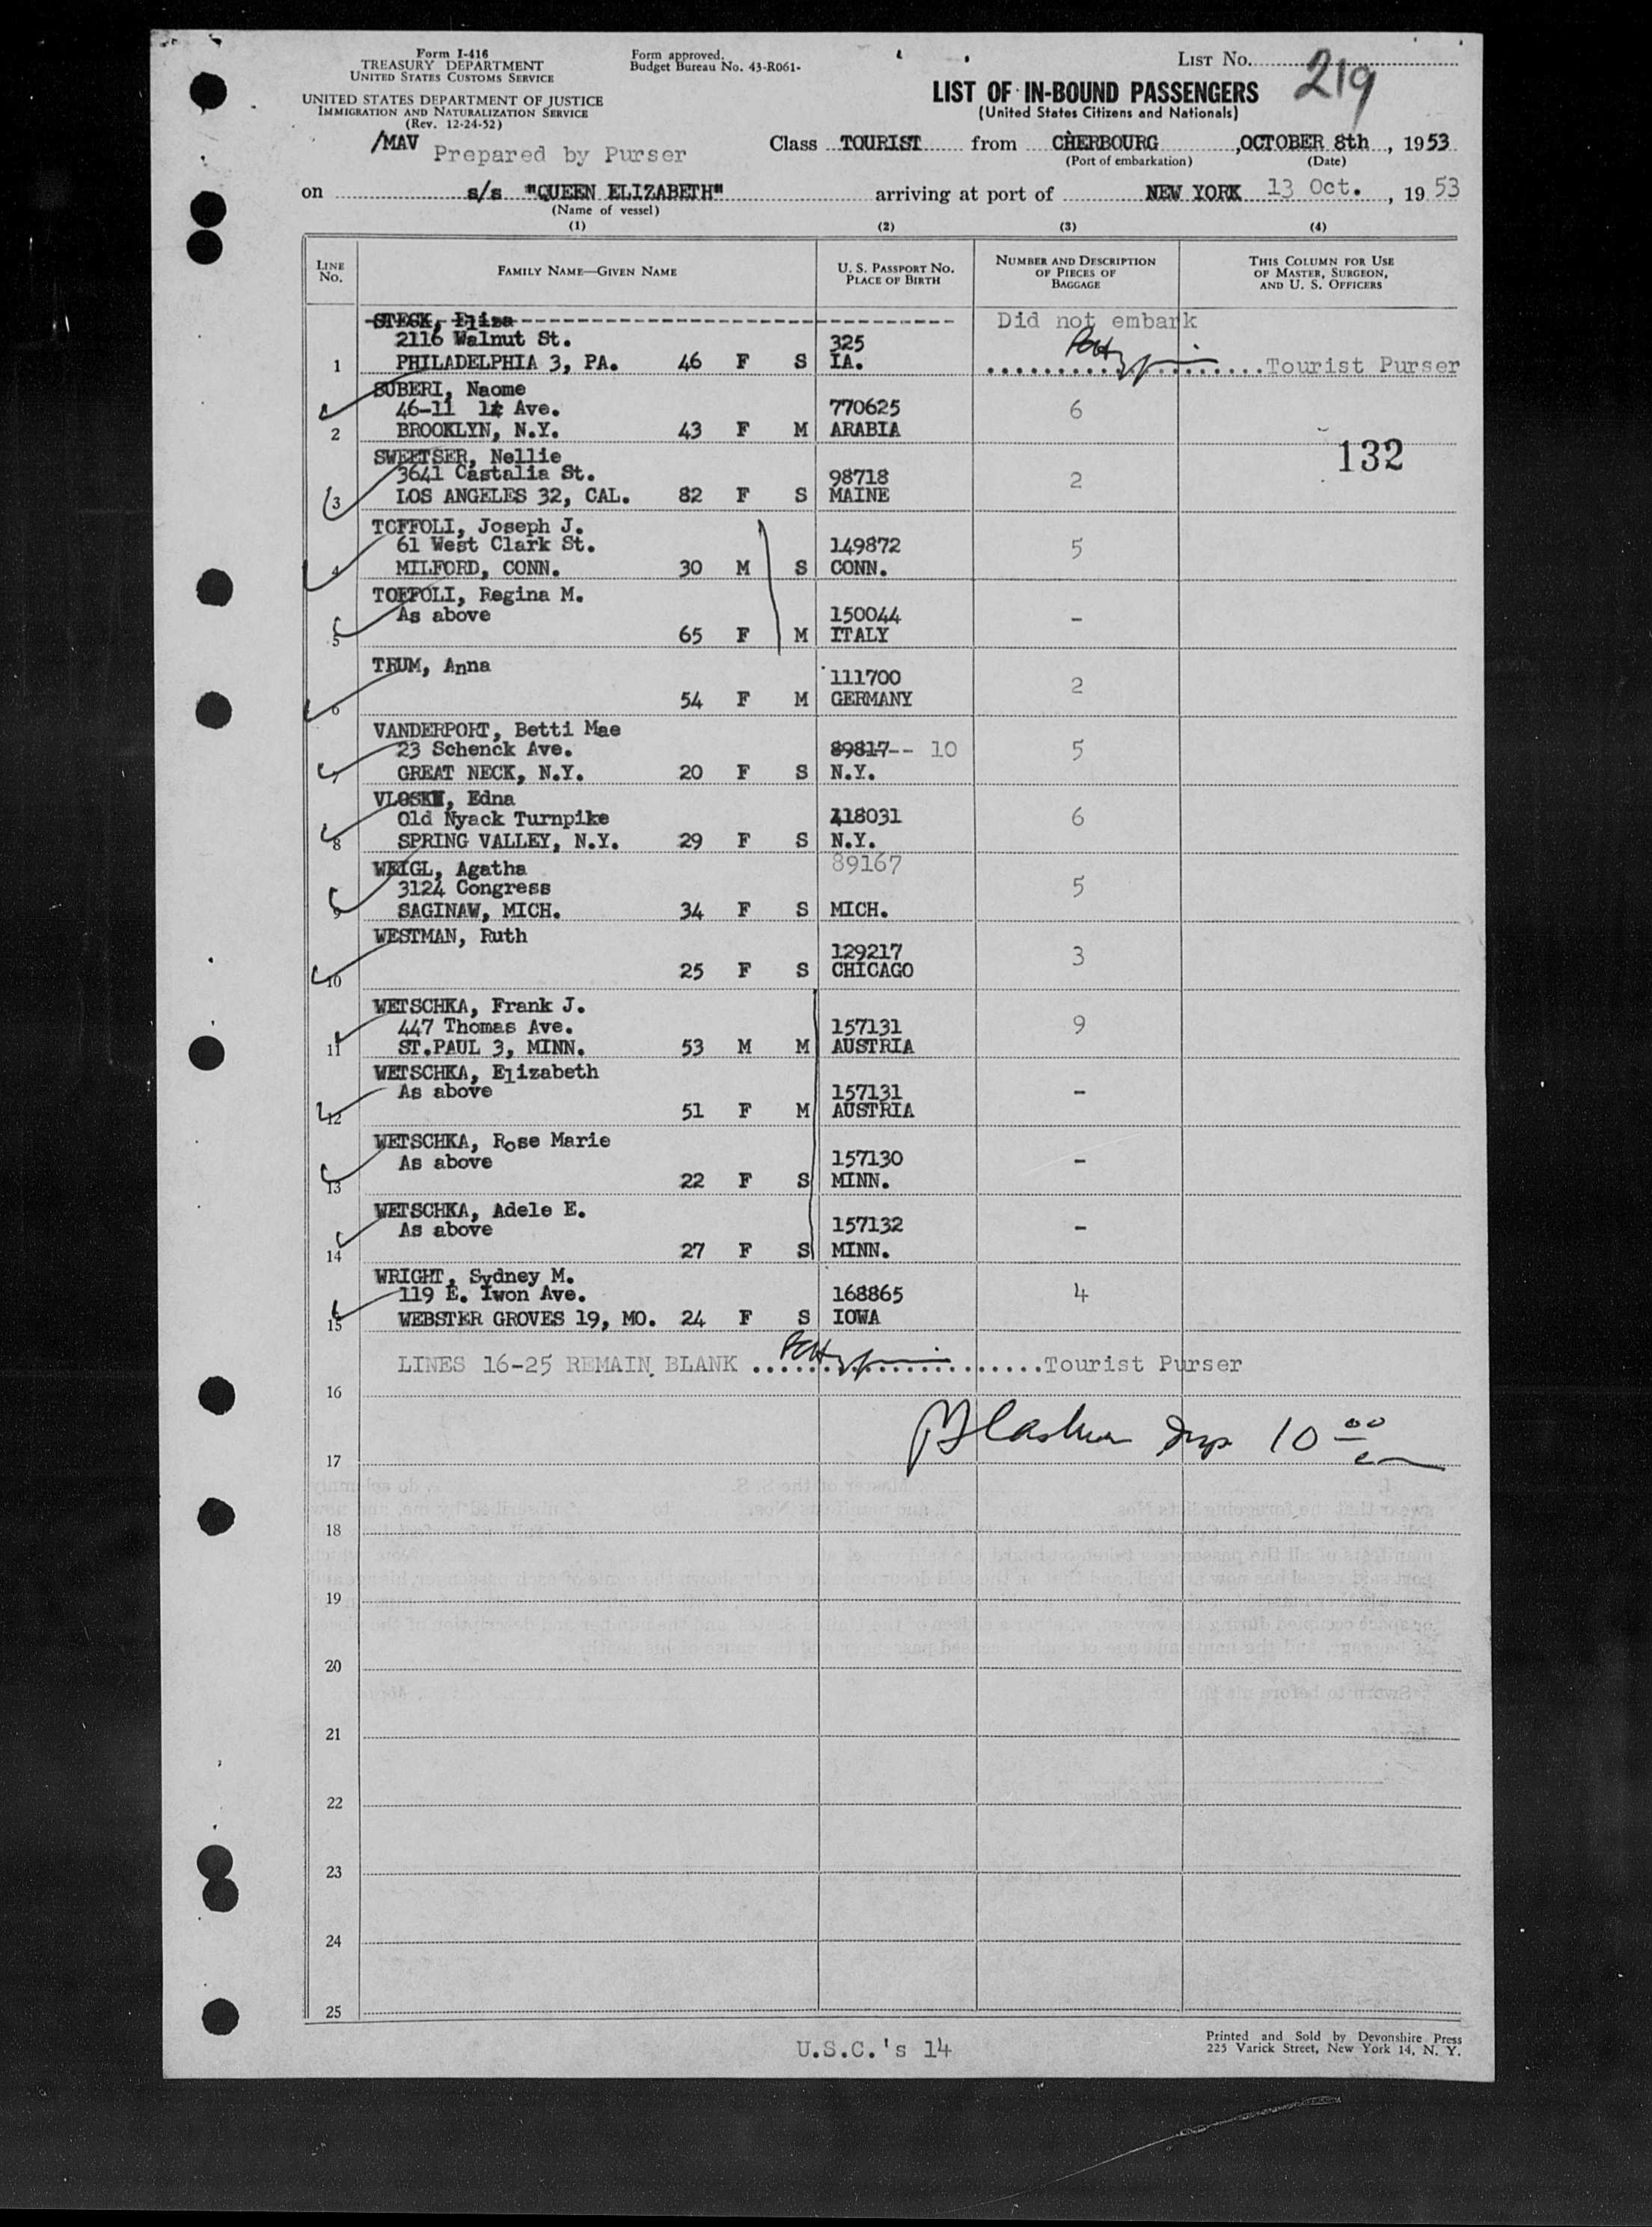 Form I-416
TREASURY DEPARTMENT
UNITED STATES CUSTOMS SERVICE
UNITED STATES DEPARTMENT OF JUSTICE
IMMIGRATION AND NATURALIZATION SERVICE
(Rev. 12-24-52)
Form approved.
Budget Bureau No. 43-R061-
LIST No. 219
LIST OF IN-BOUND PASSENGERS
(United States Citizens and Nationals)
/MAV Prepared by Purser
Class TOURIST from CHERBOURG ,OCTOBER 8th , 1953
(Port of embarkation) (Date)
on s/s "QUEEN ELIZABETH" arriving at port of NEW YORK 13 Oct. , 19 53
(Name of vessel)
(1) (2) (3) (4)
LINE No. FAMILY NAME—GIVEN NAME U. S. PASSPORT NO. PLACE OF BIRTH NUMBER AND DESCRIPTION OF PIECES OF BAGGAGE THIS COLUMN FOR USE OF MASTER, SURGEON, AND U. S. OFFICERS
STECK, Eliza Did not embark
2116 Walnut St. 325
1 PHILADELPHIA 3, PA. 46 F S IA. Tourist Purser
SUBERI, Naome
46-11 1t Ave. 770625 6
2 BROOKLYN, N.Y. 43 F M ARABIA
132
SWEETSER, Nellie
3641 Castalia St. 98718 2
3 LOS ANGELES 32, CAL. 82 F S MAINE
TOFFOLI, Joseph J.
61 West Clark St. 149872 5
4 MILFORD, CONN. 30 M S CONN.
TOFFOLI, Regina M.
As above 150044 -
5 65 F M ITALY
TRUM, Anna
111700 2
6 54 F M GERMANY
VANDERPORT, Betti Mae
23 Schenck Ave. 89817-- 10 5
7 GREAT NECK, N.Y. 20 F S N.Y.
VLOSKY, Edna
Old Nyack Turnpike 118031 6
8 SPRING VALLEY, N.Y. 29 F S N.Y.
WEIGL, Agatha 89167
3124 Congress 5
9 SAGINAW, MICH. 34 F S MICH.
WESTMAN, Ruth
129217 3
10 25 F S CHICAGO
WETSCHKA, Frank J.
447 Thomas Ave. 157131 9
11 ST.PAUL 3, MINN. 53 M M AUSTRIA
WETSCHKA, Elizabeth
As above 157131 -
12 51 F M AUSTRIA
WETSCHKA, Rose Marie
As above 157130 -
13 22 F S MINN.
WETSCHKA, Adele E.
As above 157132 -
14 27 F S MINN.
WRIGHT, Sydney M.
119 E. Iwon Ave. 168865 4
15 WEBSTER GROVES 19, MO. 24 F S IOWA
LINES 16-25 REMAIN BLANK Tourist Purser
16
Insp 10 00
17
18
19
20
21
22
23
24
25
U.S.C.'s 14
Printed and Sold by Devonshire Press
225 Varick Street, New York 14, N. Y.